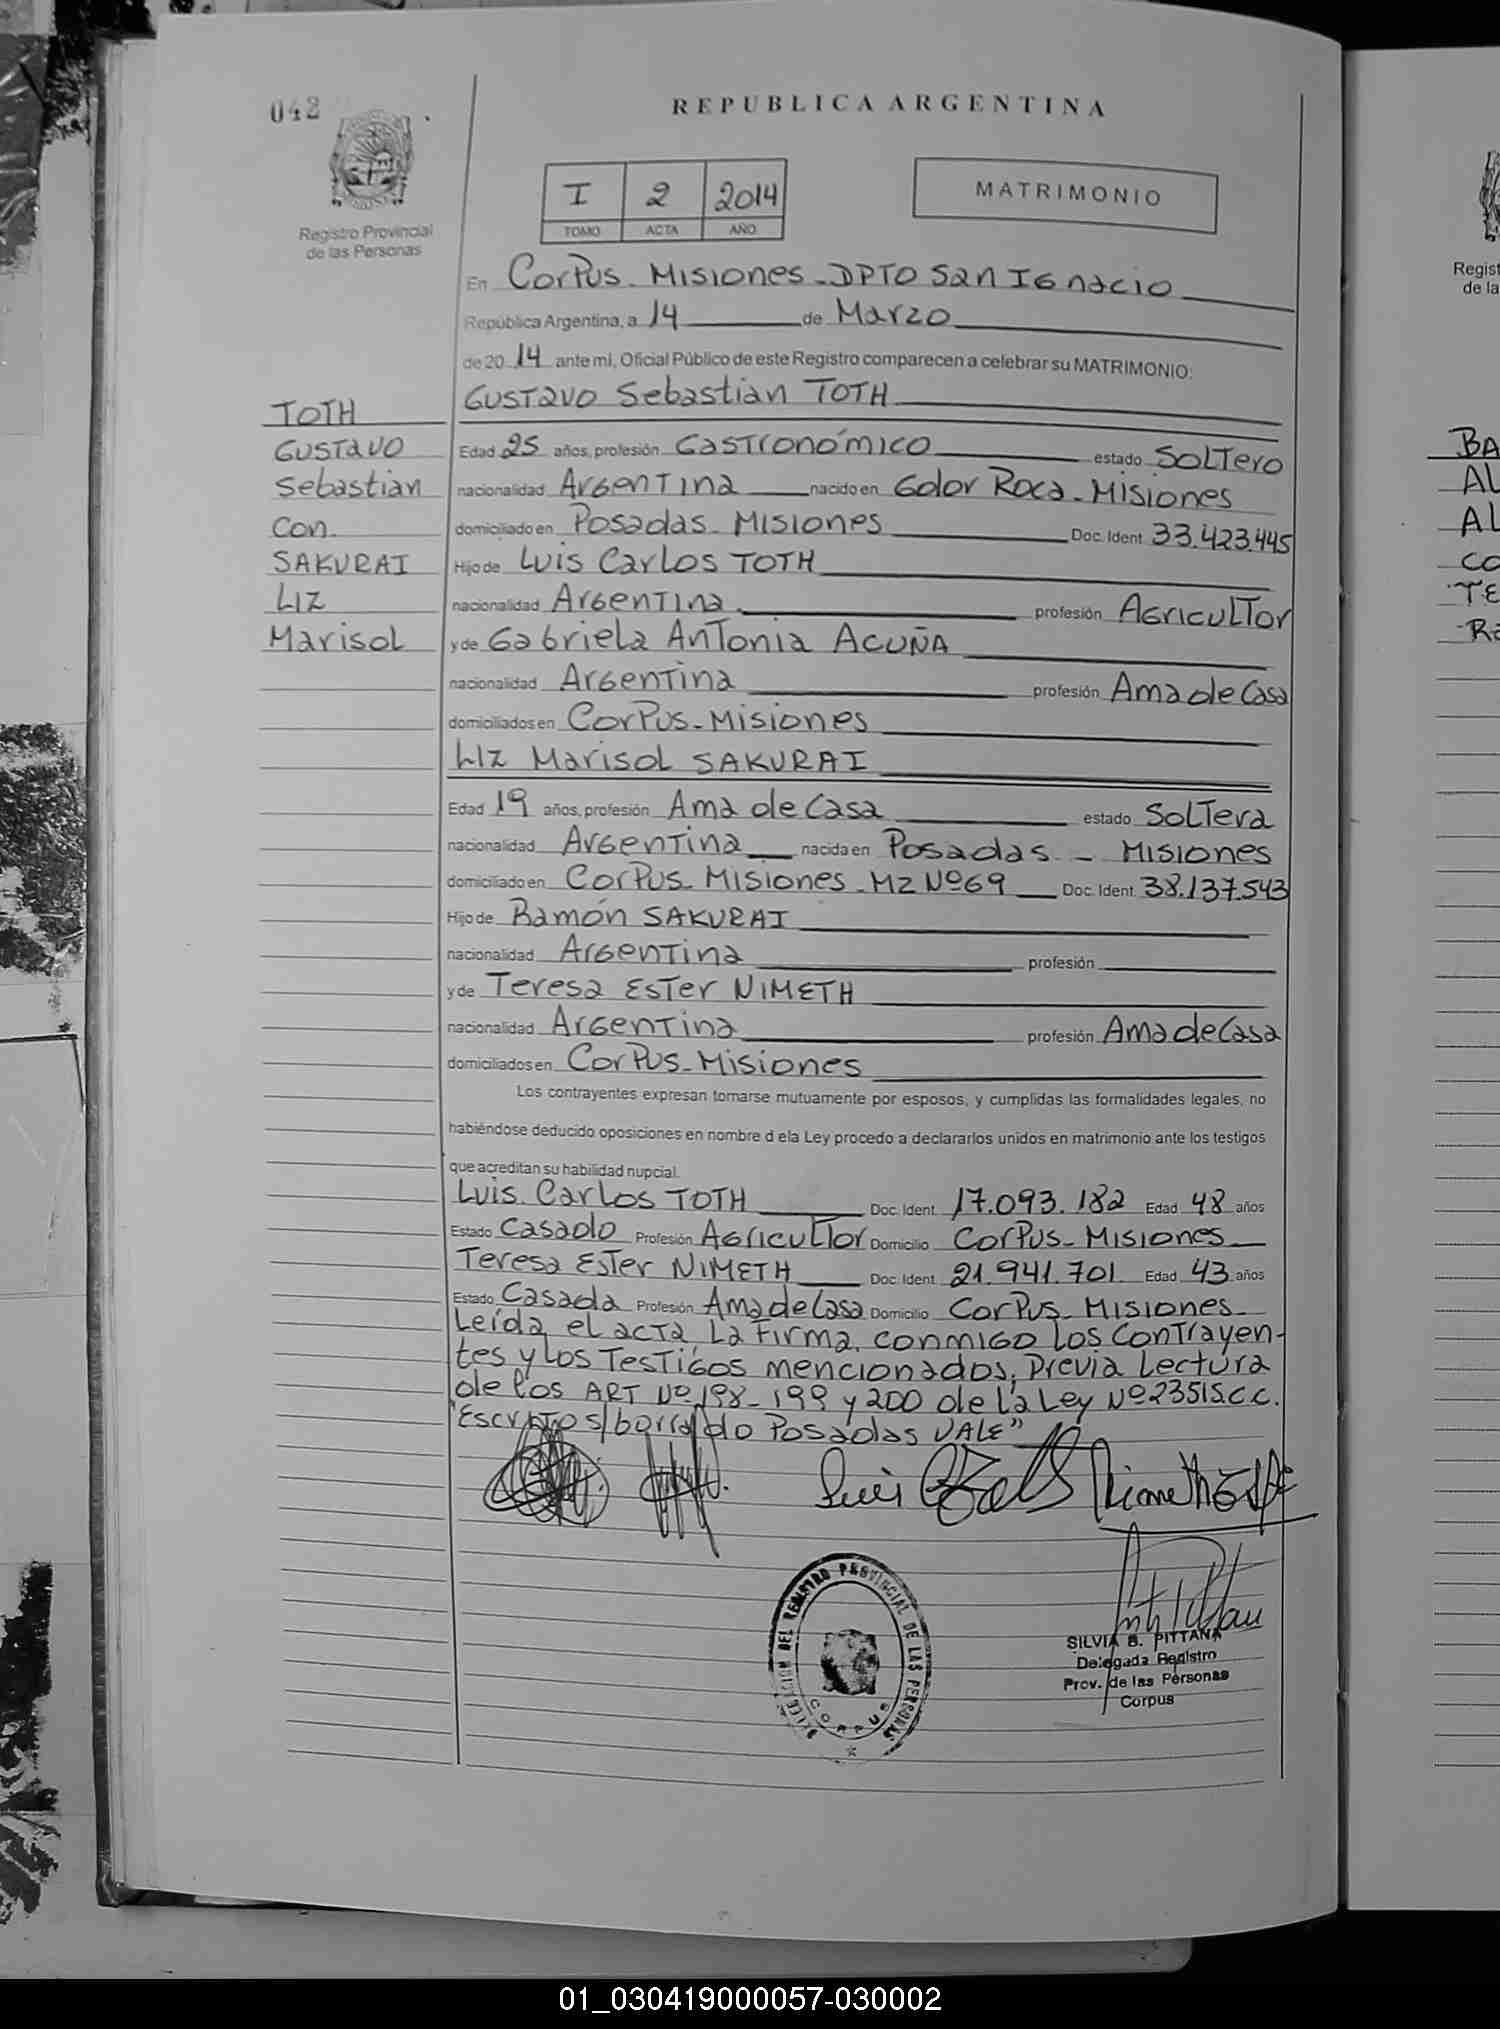 042
REPUBLICA ARGENTINA
Registro Provincial
de las Personas
I 2 2014
TOMO ACTA AÑO
MATRIMONIO
En Corpus - Misiones - DPTO San Ignacio
República Argentina, a 14 de Marzo
de 20 14 ante mi, Oficial Público de este Registro comparecen a celebrar su MATRIMONIO:
TOTH
Gustavo
Sebastian
Con
SAKURAI
Liz
Marisol
Gustavo Sebastian TOTH
Edad 25 años, profesión Gastronómico estado Soltero
nacionalidad Argentina nacido en Golor Roca - Misiones
domiciliado en Posadas - Misiones Doc. Ident. 33.423.445
Hijo de Luis Carlos TOTH
nacionalidad Argentina profesión Agricultor
y de Gabriela Antonia ACUÑA
nacionalidad Argentina profesión Ama de Casa
domiciliados en Corpus - Misiones
Liz Marisol SAKURAI
Edad 19 años, profesión Ama de Casa estado Soltera
nacionalidad Argentina nacida en Posadas - Misiones
domiciliado en Corpus - Misiones - Mz Nº 69 Doc. Ident. 38.137.543
Hijo de Ramón SAKURAI
nacionalidad Argentina profesión
y de Teresa Ester NIMETH
nacionalidad Argentina profesión Ama de Casa
domiciliados en Corpus - Misiones
Los contrayentes expresan tomarse mutuamente por esposos, y cumplidas las formalidades legales, no
habiéndose deducido oposiciones en nombre d ela Ley procedo a declararlos unidos en matrimonio ante los testigos
que acreditan su habilidad nupcial.
Luis Carlos TOTH Doc. Ident. 17.093.182 Edad 48 años
Estado Casado Profesión Agricultor Domicilio Corpus - Misiones
Teresa Ester NIMETH Doc. Ident. 21.941.701 Edad 43 años
Estado Casada Profesión Ama de Casa Domicilio Corpus - Misiones
Leída el acta la firma conmigo los contrayen-
tes y los testigos mencionados, previa lectura
de los ART Nº 198 - 199 y 200 de la Ley Nº 23515.C.C.
"Escripto s/borrado Posadas VALE"
DELEGACION DEL REGISTRO PROVINCIAL DE LAS PERSONAS
CORPUS
SILVIA B. PITTANA
Delegada Registro
Prov. de las Personas
Corpus
Regist
de la
BA
AL
AL
CO
TE
Ra
01_030419000057-030002